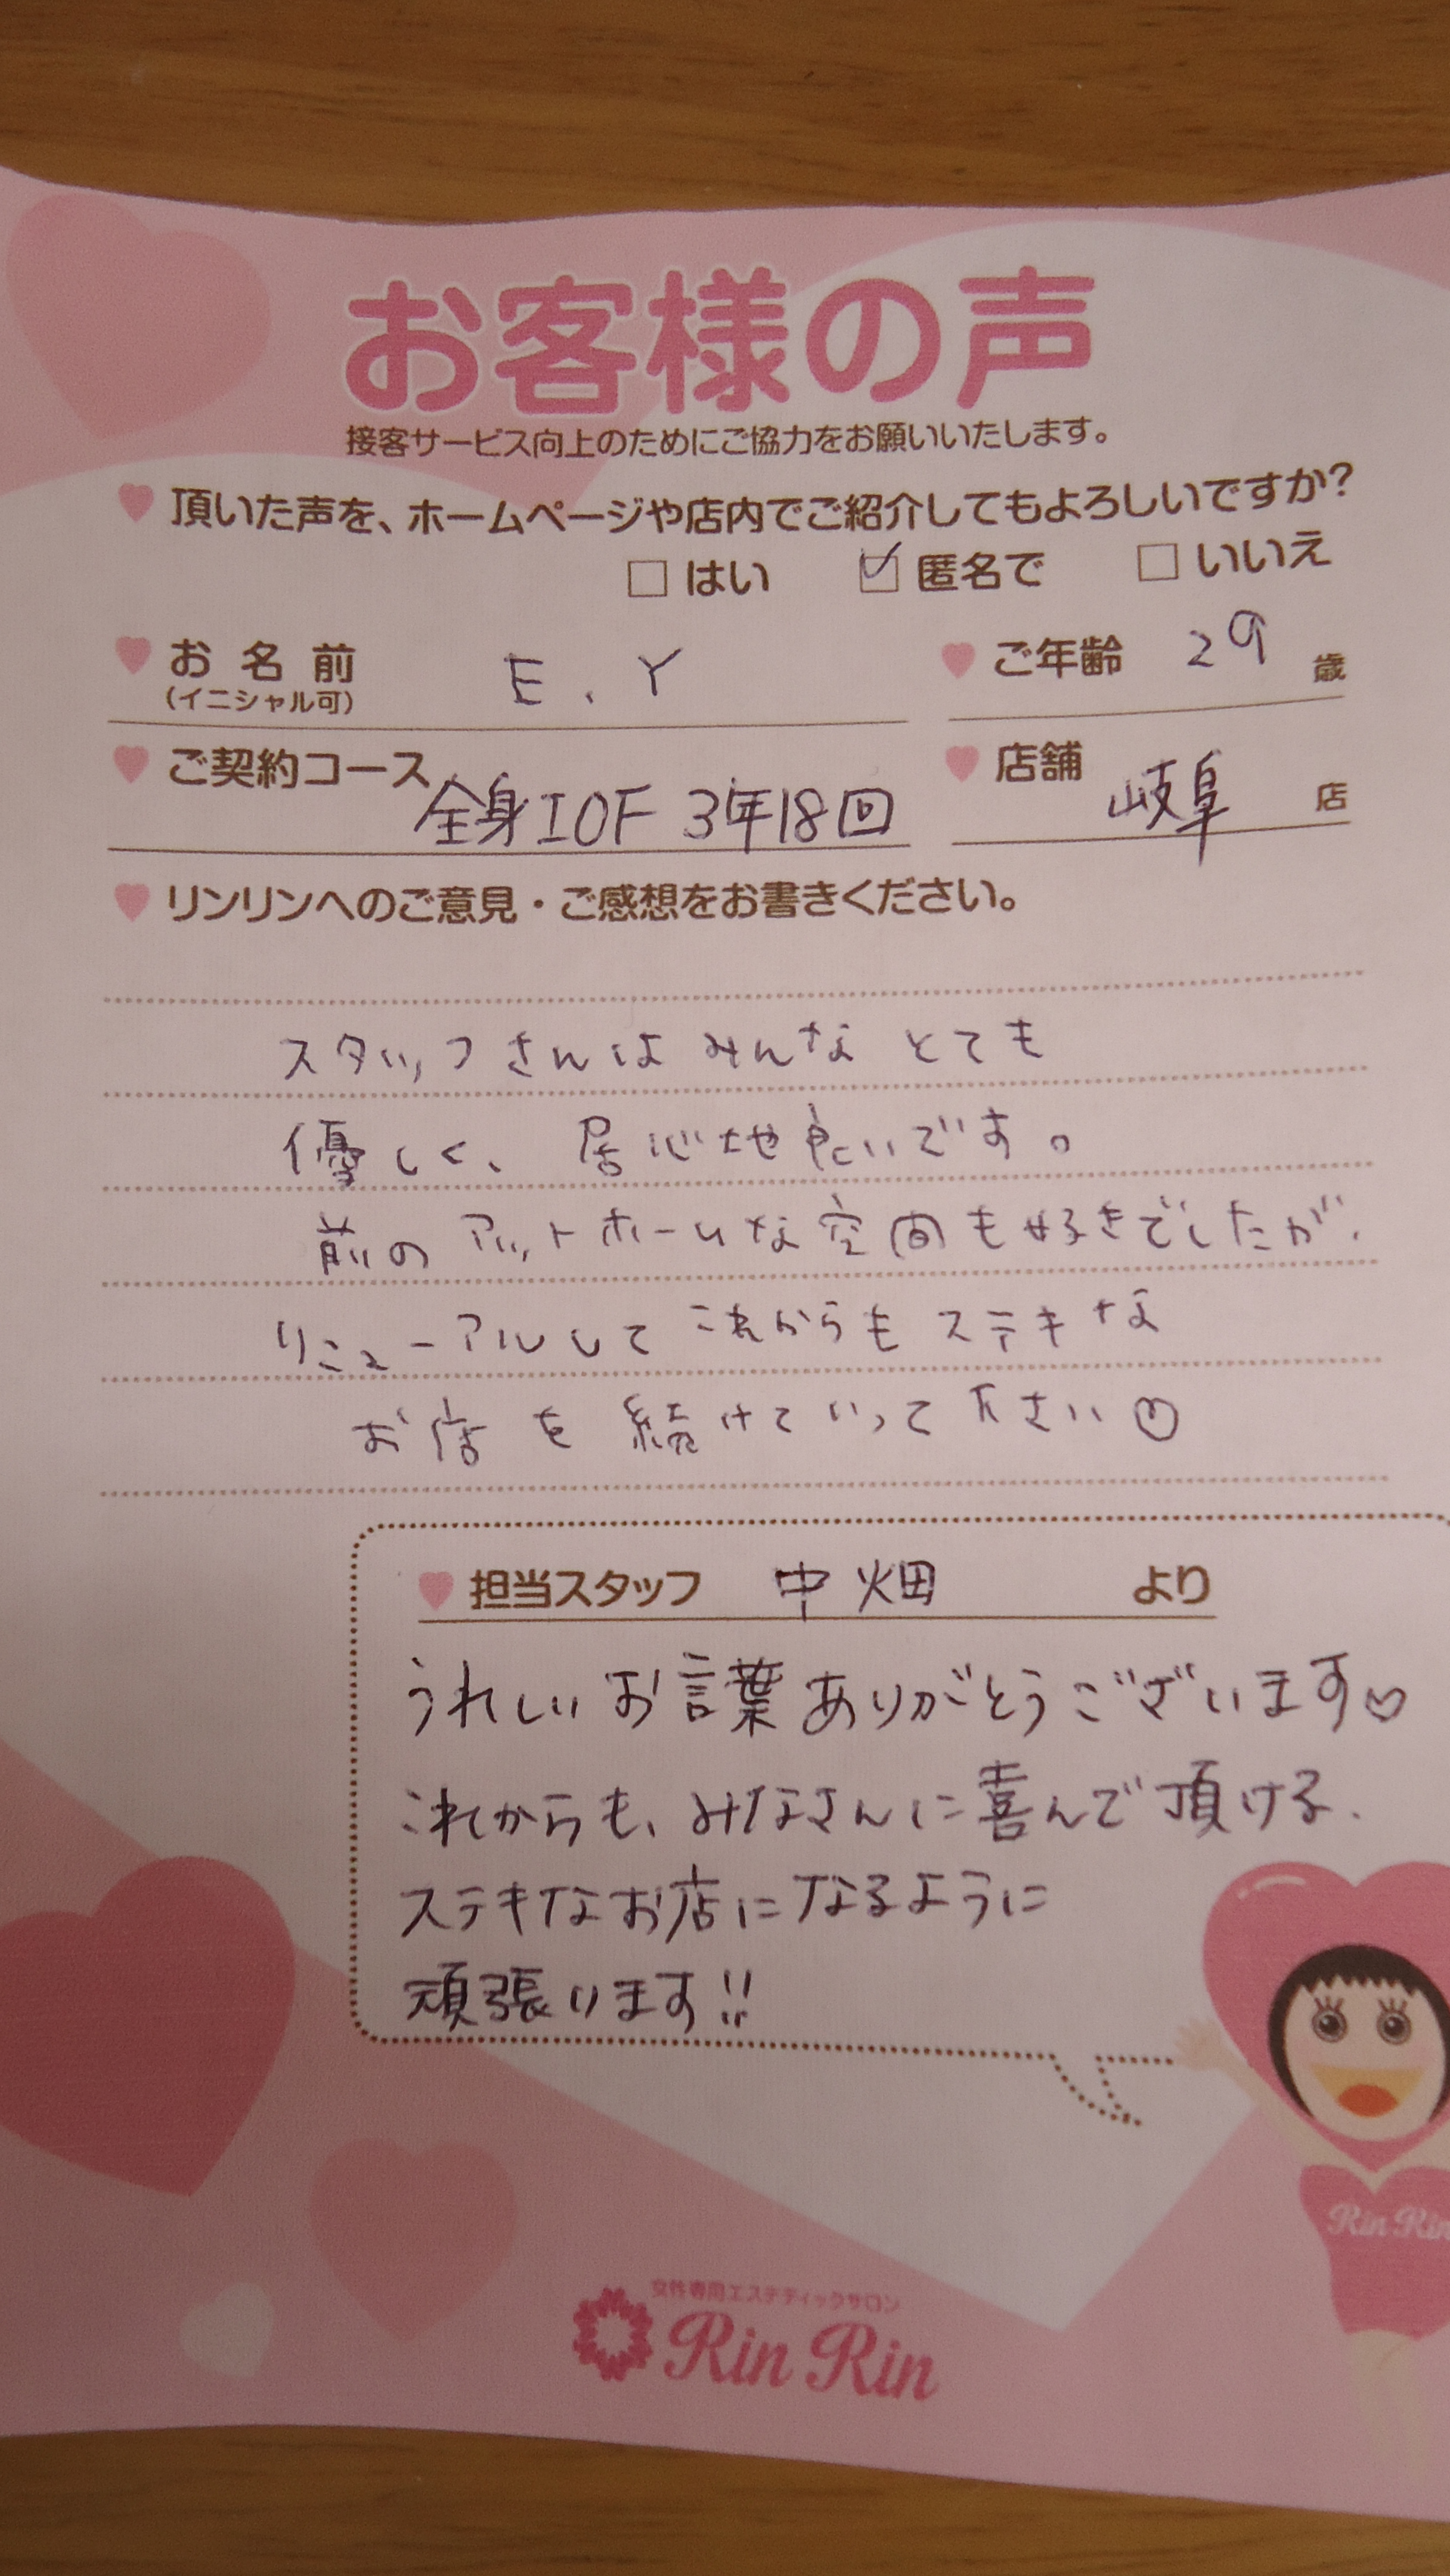 お客様の声
接客サービス向上のためにご協力をお願いいたします。
頂いた声を、ホームページや店内でご紹介してもよろしいですか?
はい 匿名で いいえ
お名前 E.Y ご年齢 29 歳
(イニシャル可)
ご契約コース 全身IOF 3年18回 店舗 岐阜 店
リンリンへのご意見・ご感想をお書きください。
スタッフさんはみんなとても
優しく、居心地良いです。
前のアットホームな空間も好きでしたが、
リニューアルしてこれからもステキな
お店を続けていって下さい
担当スタッフ 中畑 より
うれしいお言葉ありがとうございます♡
これからも、みなさんに喜んで頂ける、
ステキなお店になるように
頑張ります!!
Rin Rin
女性専用エステティックサロン
Rin Rin